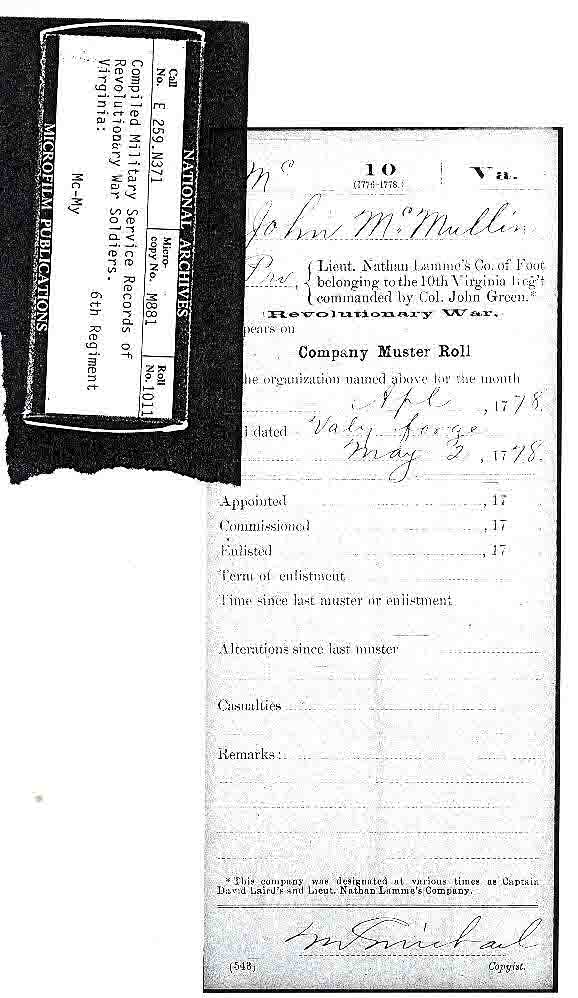 NATIONAL ARCHIVES
Call
No. E 259.N371
Micro-
copy No. M881
Roll
No. 1011
Compiled Military Service Records of
Revolutionary War Soldiers.
Virginia:
Mc-My 6th Regiment
MICROFILM PUBLICATIONS
Mc 10 Va.
(1776-1778.)
John McMullin
Priv, Lieut. Nathan Lamme's Co. of Foot
belonging to the 10th Virginia Reg't
commanded by Col. John Green.*
Revolutionary War.
pears on
Company Muster Roll
he organization named above for the month
Apl , 1778.
dated Valy forge
May 2, 1778.
Appointed , 17
Commissioned , 17
Enlisted , 17
Term of enlistment
Time since last muster or enlistment
Alterations since last muster
Casualties
Remarks:
*This company was designated at various times as Captain
David Laird's and Lieut. Nathan Lamme's Company.
(543) Copyist.